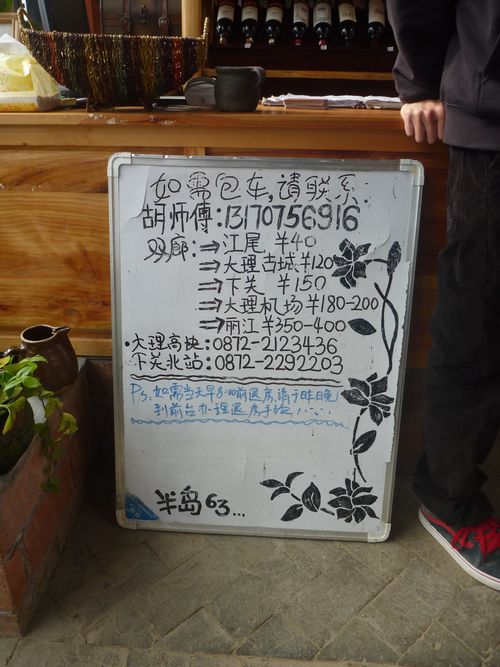 如需包车,请联系:
胡师傅:13170756916
双廊:⇒江尾 ¥40
⇒大理古城¥120
⇒下关 ¥150
⇒大理机场¥180-200
⇒丽江¥350-400
·大理高快:0872-2123436
下关北站:0872-2292203
Ps:如需当天早8:00前退房,请于昨晚
到前台办理退房手续!
半岛63...